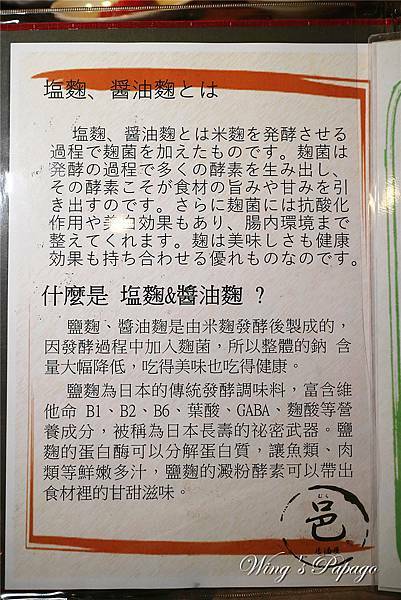 塩麴、醤油麴とは
塩麴、醤油麴とは米麴を発酵させる
過程で麹菌を加えたものです。麹菌は
発酵の過程で多くの酵素を生み出し、
その酵素こそが食材の旨みや甘みを引
き出すのです。さらに麹菌には抗酸化
作用や美白効果もあり、腸内環境まで
整えてくれます。麹は美味しさも健康
効果も持ち合わせる優れものなのです。
什麼是 塩麴&醬油麴 ?
鹽麴、醬油麴是由米麴發酵後製成的，
因發酵過程中加入麴菌，所以整體的鈉 含
量大幅降低，吃得美味也吃得健康。
鹽麴為日本的傳統發酵調味料，富含維
他命 B1、B2、B6、葉酸、GABA、麴酸等營
養成分，被稱為日本長壽的祕密武器。鹽
麴的蛋白酶可以分解蛋白質，讓魚類、肉
類等鮮嫩多汁，鹽麴的澱粉酵素可以帶出
食材裡的甘甜滋味。
むら
邑
Wing's Papago